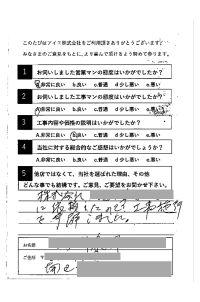 このたびはアイフ株式会社をご利用頂きありがとうございます。
みなさまのご意見をもとに、より喜んで頂けるよう努めて参ります。
1 お伺いしました営業マンの態度はいかがでしたか？
a.非常に良い b.良い c.普通 d 少し悪い e.悪い
2 お伺いしました工事マンの態度はいかがでしたか？
a.非常に良い b.良い c.普通 d 少し悪い e.悪い
3 工事内容や価格の説明はいかがでしたか？
a.非常に良い b.良い c.普通 d 少し悪い e.悪い
4 当社に対する総合的なご感想はいかがでしょうか？
a.非常に良い b.良い c.普通 d 少し悪い e.悪い
5 他店ではなくて、当社を選ばれた理由、その他
どんな事でも結構です。ご意見、ご要望をお聞かせ下さい。
株式会社
に依頼したのです 工事
を
お名前
ご住所 〒